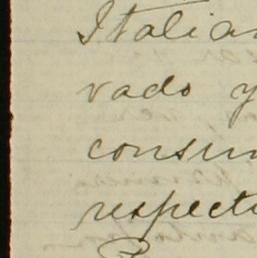 Italian
vado y
consum
respecti